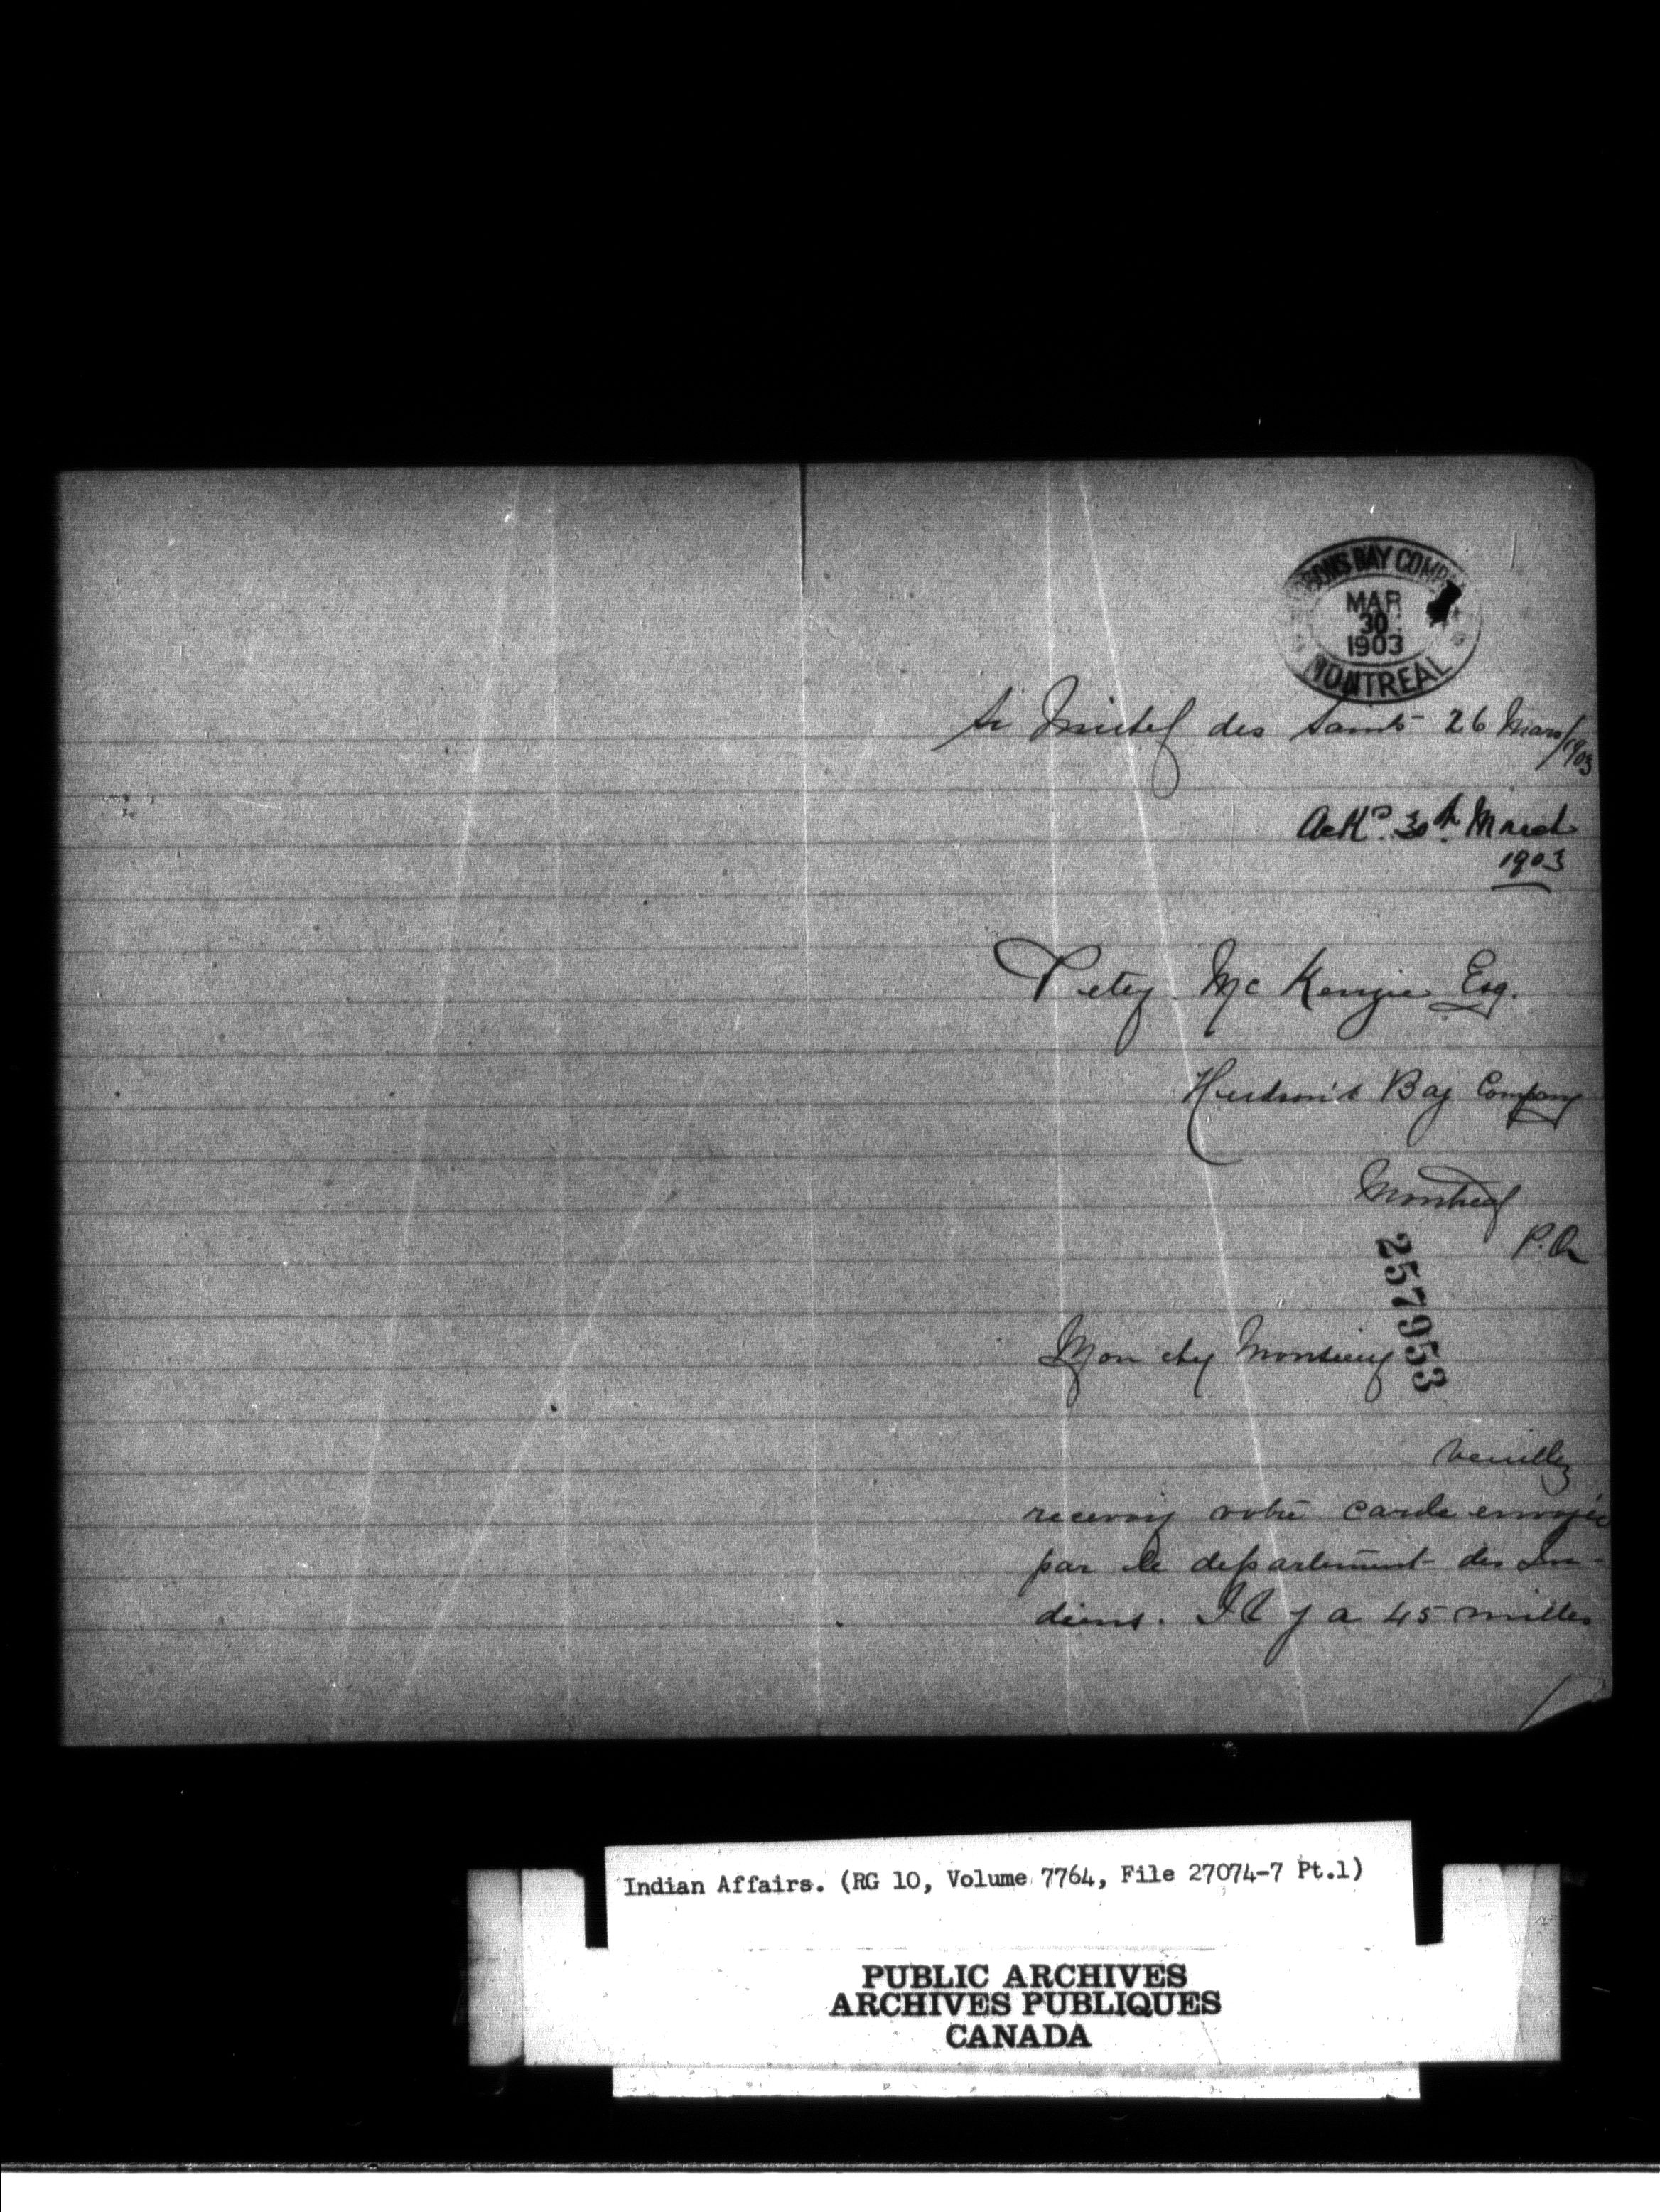 HUDSONS BAY COMPANY
MAR
30
1903
MONTREAL
St Michel des Saints 26 Mars/1903
Ackd. 30th March
1903
Peter McKenzie Esq.
Hudson's Bay Company
Montreal
P.Q
257953
Mon cher Monsieur
Veuillez
recevoir votre carde envoyée
par le departement des In-
diens. Il y a 45 milles
Indian Affairs. (RG 10, Volume 7764, File 27074-7 Pt.1)
PUBLIC ARCHIVES
ARCHIVES PUBLIQUES
CANADA